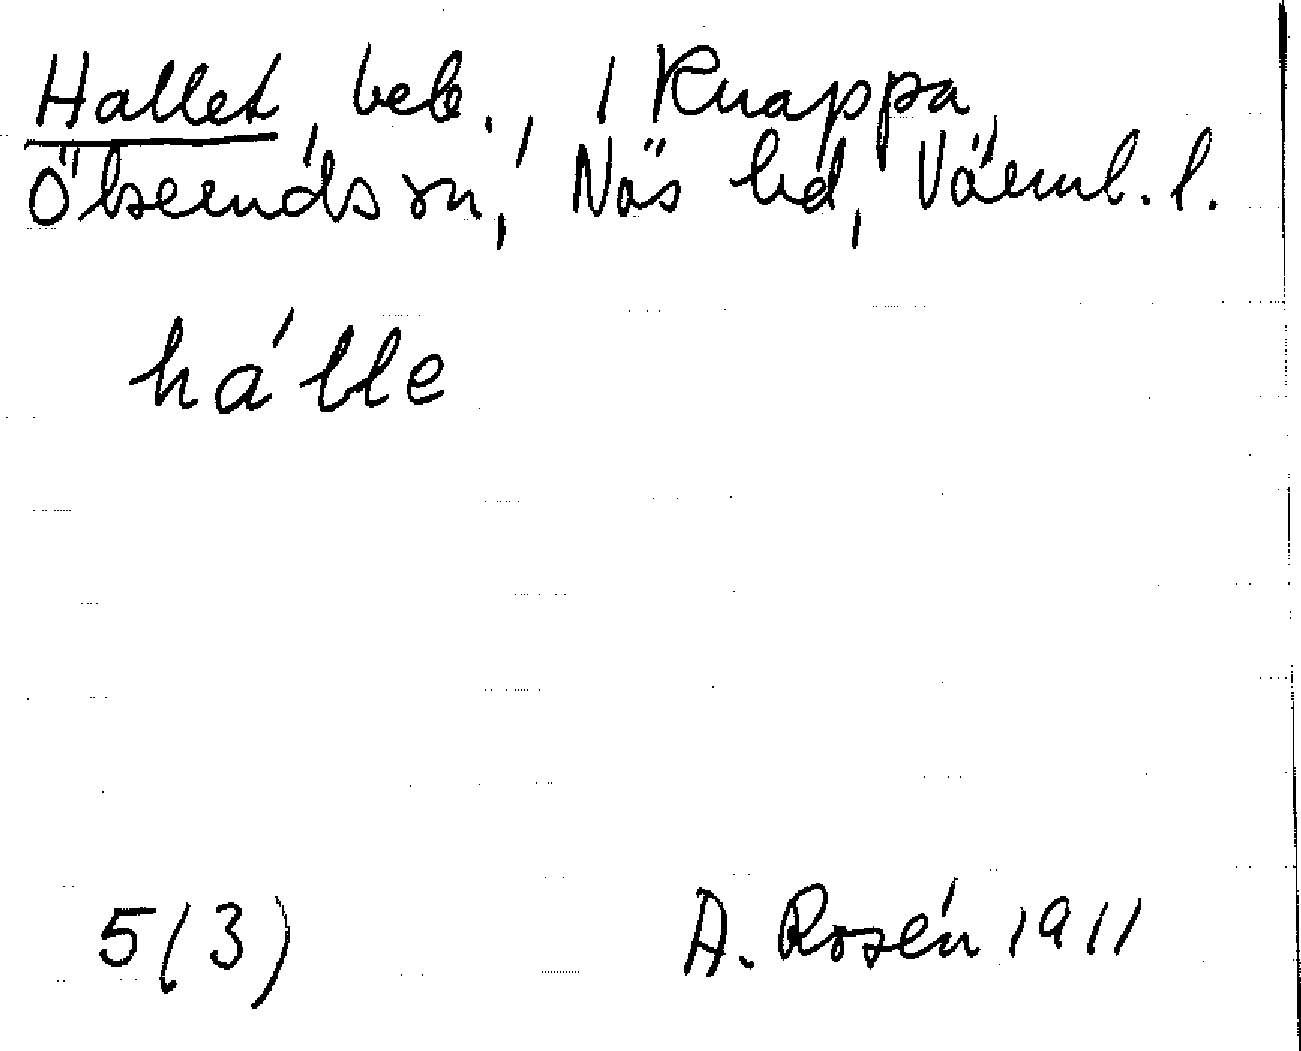 Hallet, beb., i Knappa,
Ölseruds sn, Näs hd, Värml. l.
hálle
5(3) A. Rosén 1911